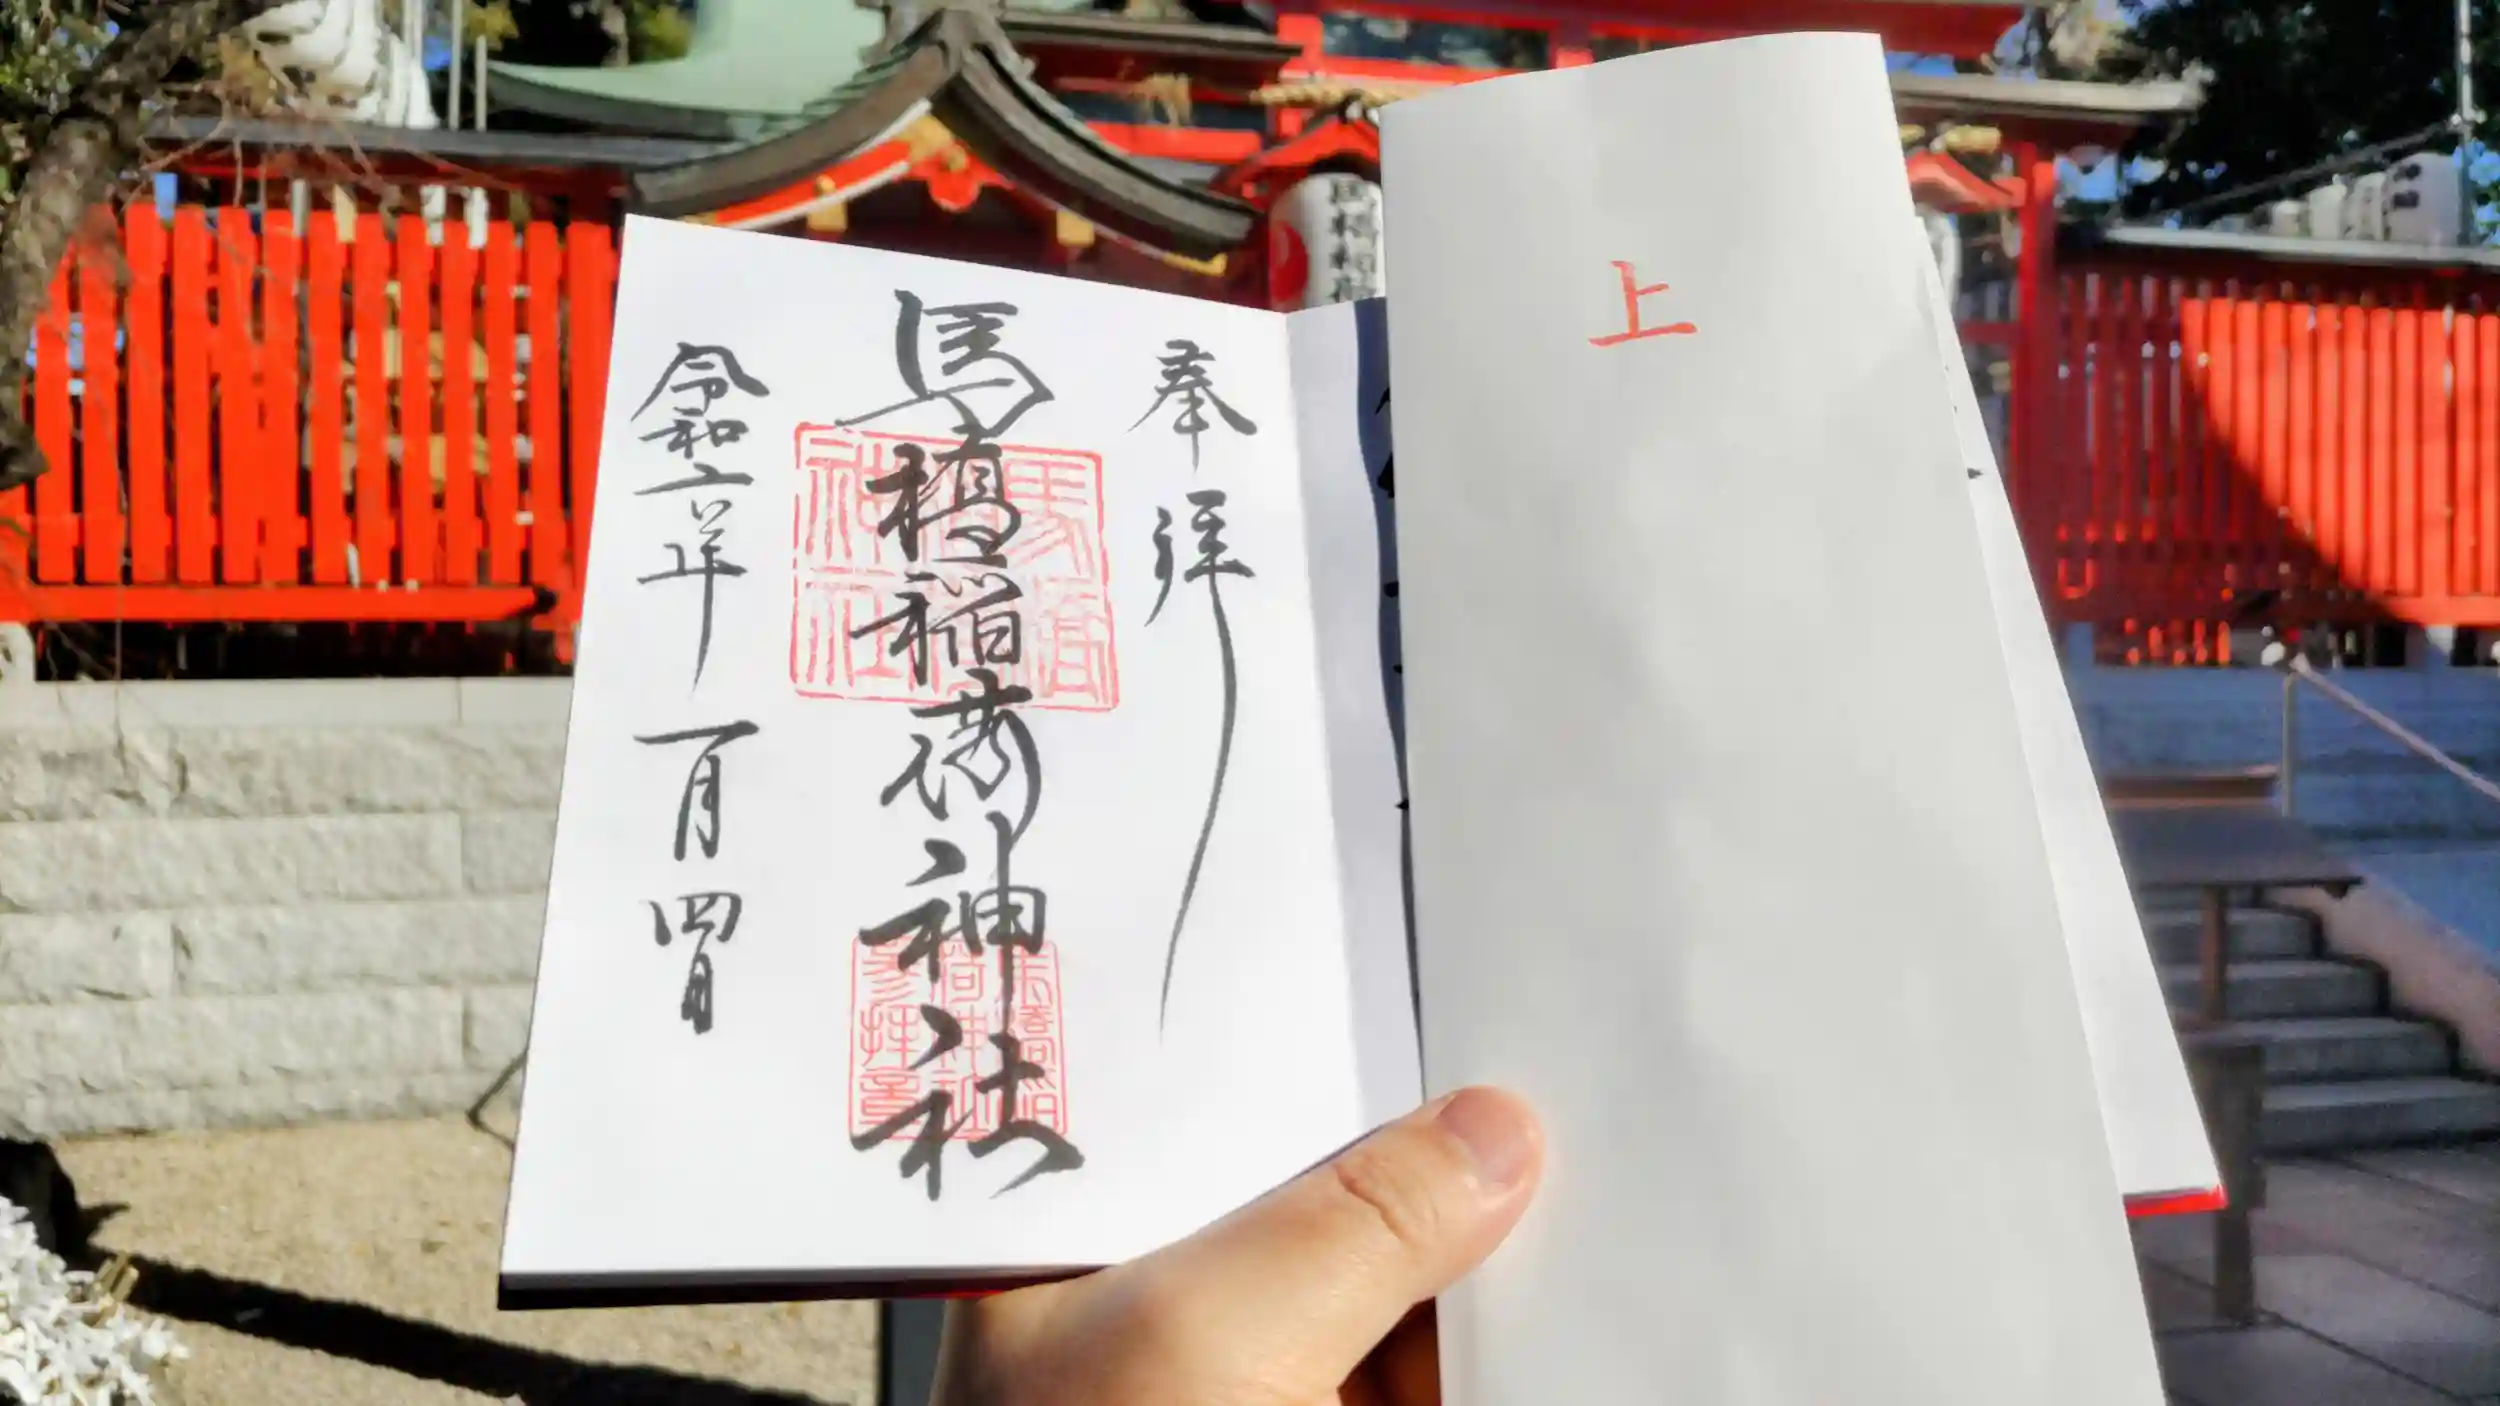 上
奉拝
馬橋稲荷神社
令和六年 一月四日
馬橋
稲荷
神社
馬橋稲
荷神社
参拝章